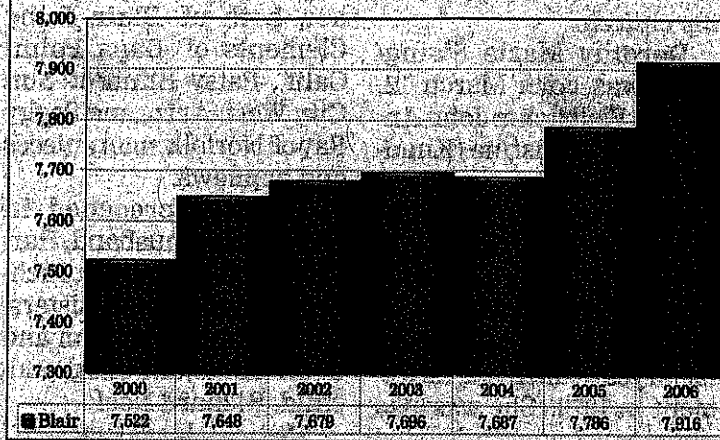 8,000
7,900
7,800
7,700
7,600
7,500
7,400
7,300
2000 2001 2002 2003 2004 2005 2006
Blair 7,522 7,648 7,679 7,696 7,687 7,786 7,916